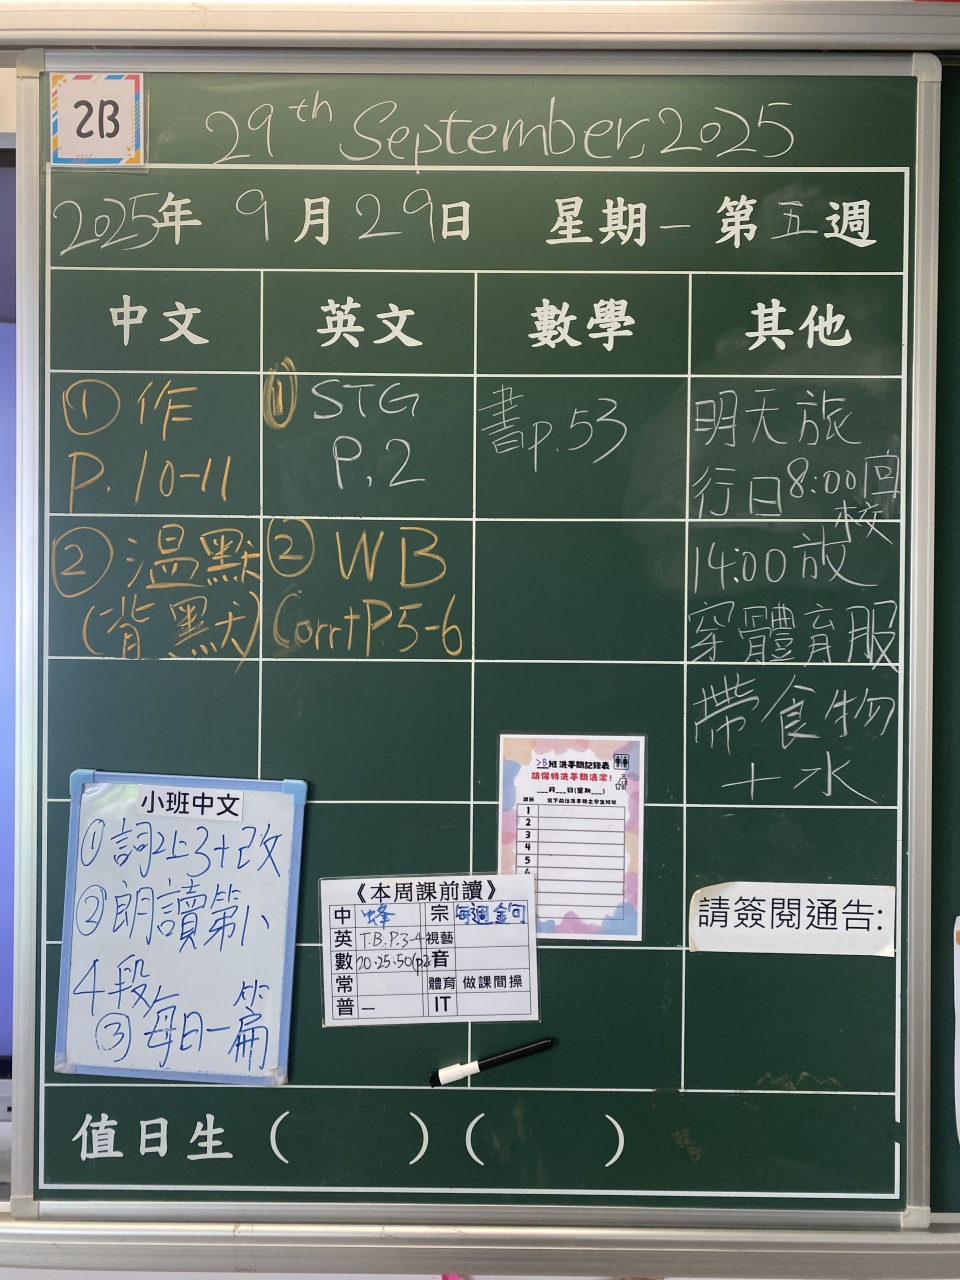 2B
29th September, 2025
2025年 9月29日 星期一 第五週
中文 英文 數學 其他
① 作
P. 10-11
② 溫默
(背默)
① STG
P.2
② WB
Corrt P.5-6
書p.53
明天旅
行日8:00回
校
14:00放
穿體育服
帶食物
+水
小班中文
① 詞2上3+改
② 朗讀第1、
4段
③ 每日一篇
2B班洗手間記錄表
請保持洗手間清潔!
___月___日(星期___)
1
2
3
4
5
6
《本周課前讀》
中 蜂 宗 每週金句
英 T.B. P.3-4 視藝
數 20.25.50 音
常 體育 做課間操
普 — IT
請簽閱通告:
值日生 ( ) ( )